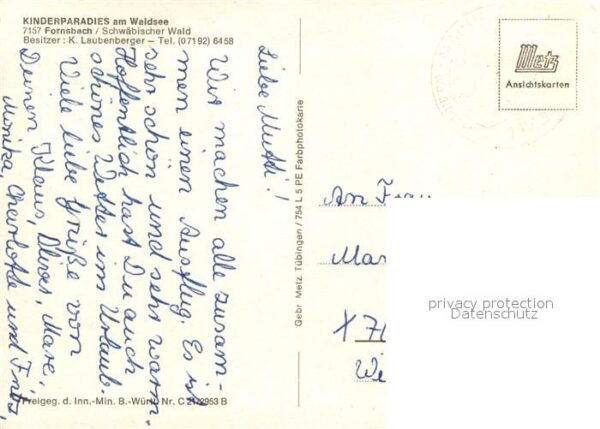 KINDERPARADIES am Waldsee
7157 Fornsbach / Schwäbischer Wald
Besitzer : K. Laubenberger – Tel. (07192) 6458
Liebe Mutti!
Wir machen alle zusam-
men einen Ausflug. Es ist
sehr schön und sehr warm.
Hoffentlich hast Du auch
schönes Wetter im Urlaub.
Viele liebe Grüße von
Deinen Klaus, Oliver, Marc,
Monika, Charlotte und Fritz
Freigeg. d. Inn.-Min. B.-Württ. Nr. C 21/2953 B
Gebr Metz Tübingen / 754 L 5 PE Farbphotokarte
Metz
Ansichtskarten
An Frau
privacy protection
Datenschutz